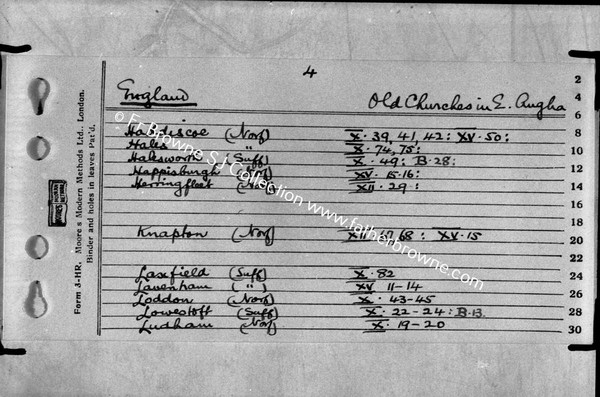 4
England Old Churches in E. Anglia
Haddiscoe (Norf) X. 39, 41, 42: XV. 50:
Hales " X. 74, 75:
Halesworth (Suff) X. 49: B. 28:
Happisburgh (Norf) XV. 15. 16:
Herringfleet XII. 29:
Knapton (Norf) XII 68: XV. 15
Laxfield (Suff) X. 82
Lavenham ( " ) XV 11-14
Loddon (Norf) X. 43-45
Lowestoft (Suff) X. 22-24: B. 13.
Ludham (Norf) X. 19-20
2
4
6
8
10
12
14
16
18
20
22
24
26
28
30
Form J-HR. Moore's Modern Methods Ltd., London.
Binder and holes in leaves Pat'd.
© Fr Browne S.J. Collection www.fatherbrowne.com